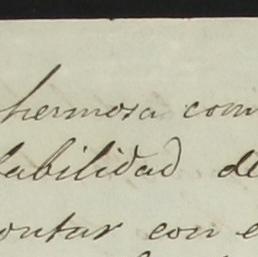 hermosa com
labilidad de
ontar con e